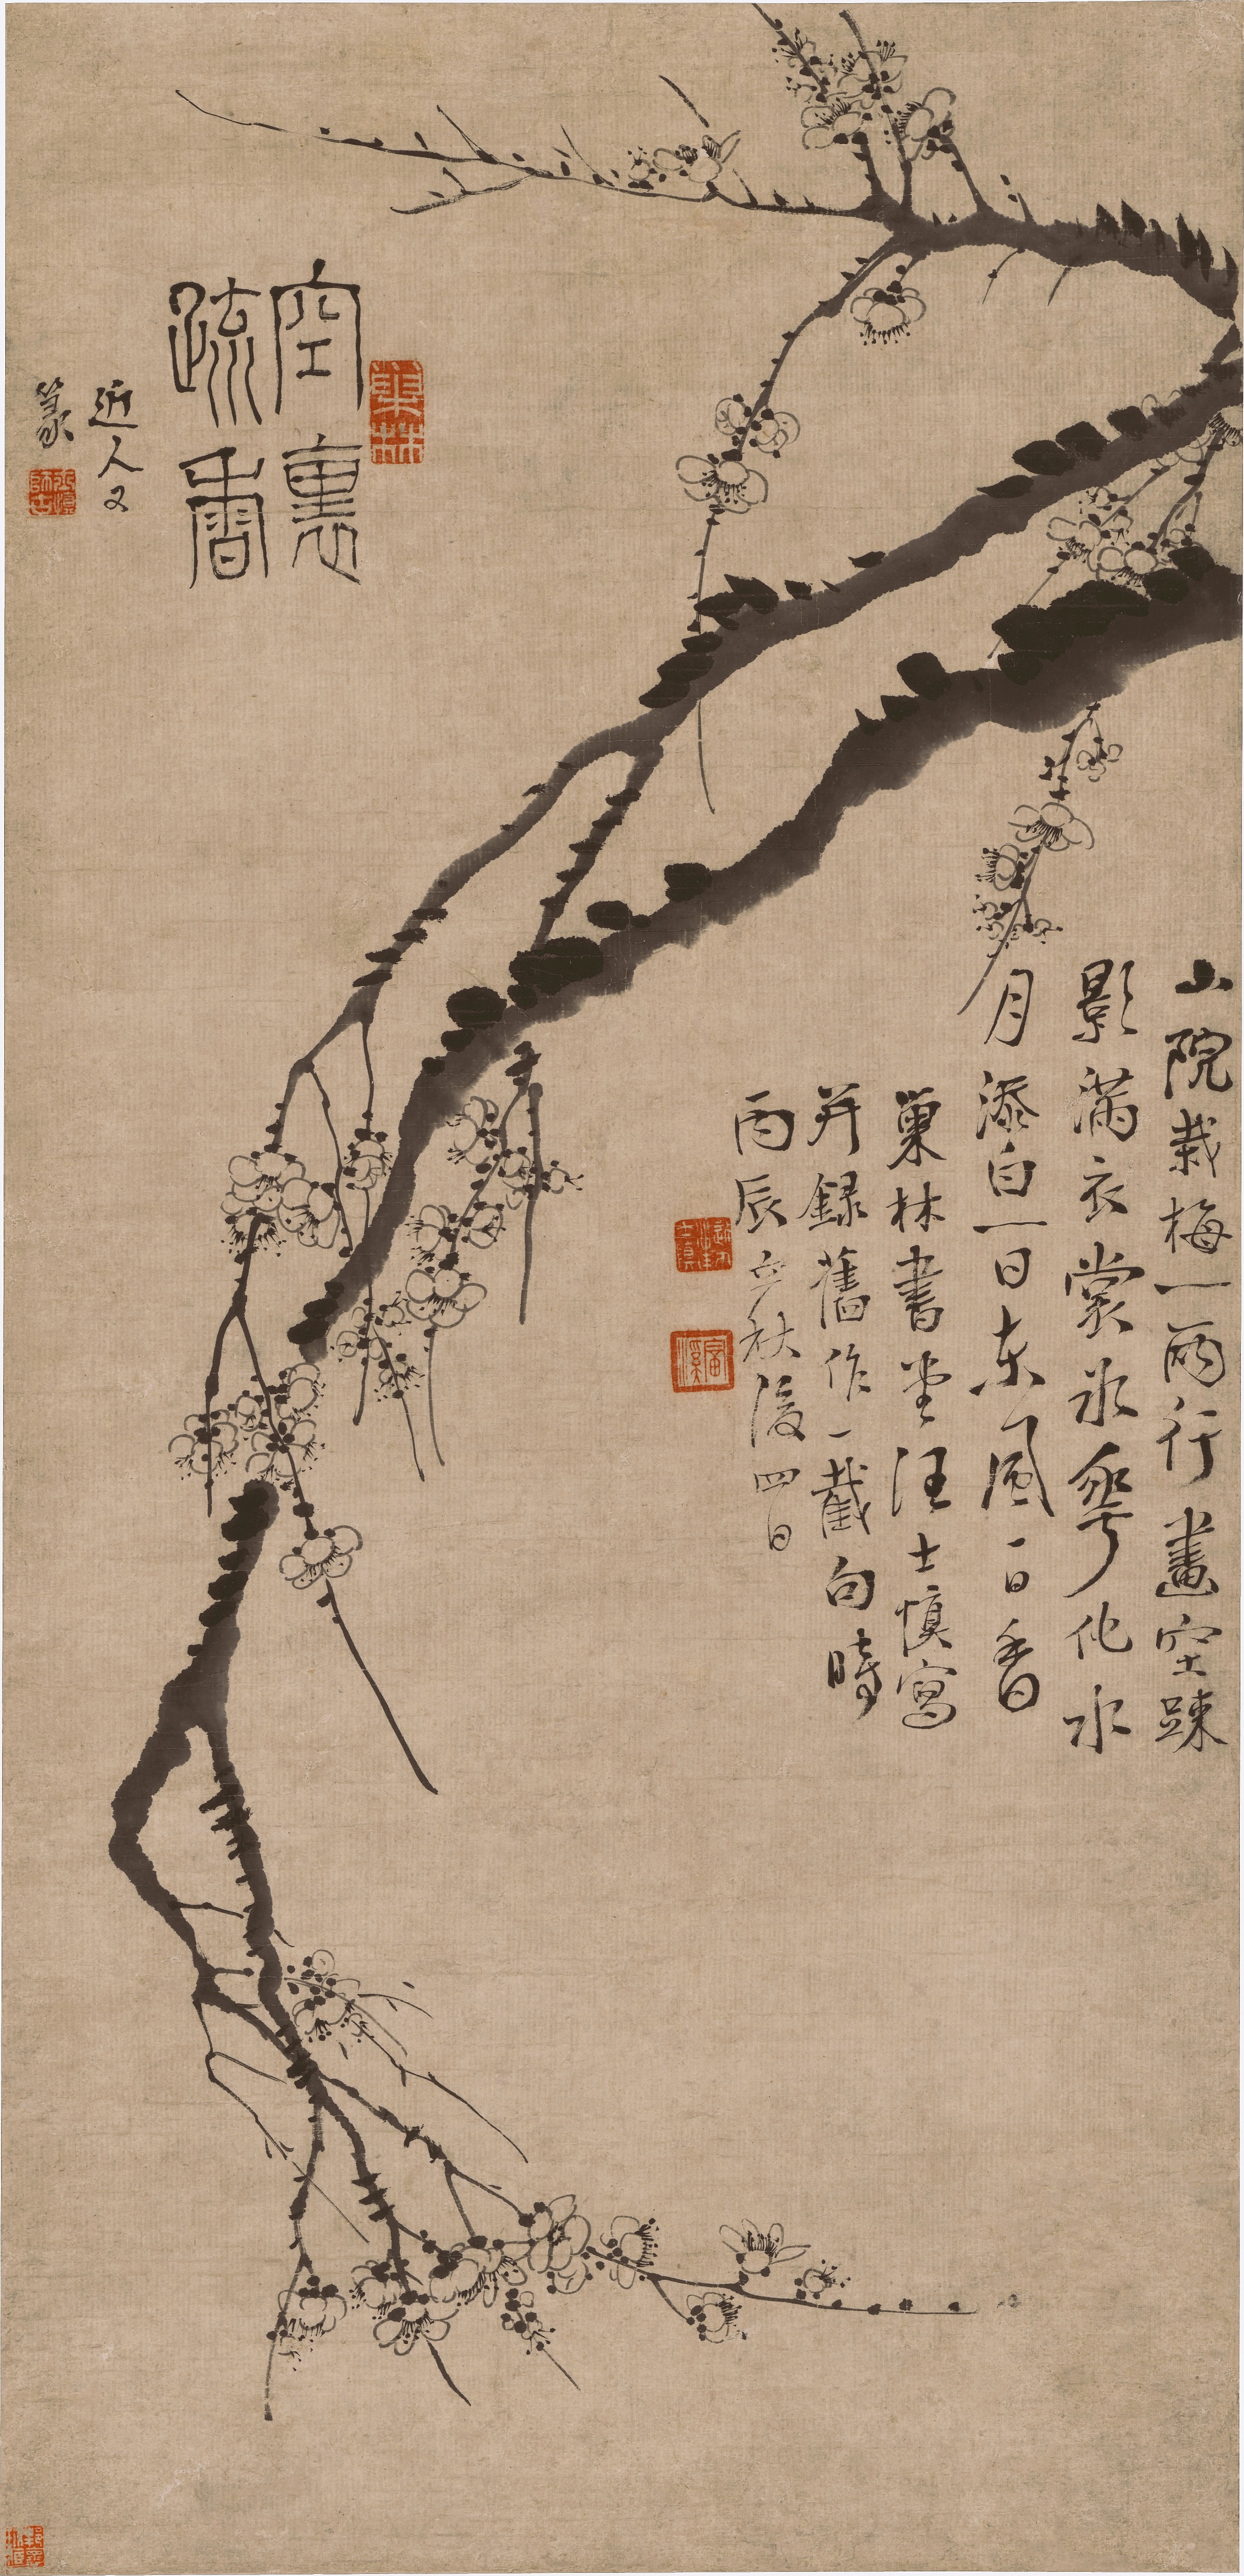 山院栽梅一兩行畫空踈
影滿衣裳冰華化水
月添白一日東風一日香
巢林書堂汪士慎寫
并録舊作一截句時
丙辰立秋後四日
富溪
空裏
疏香
近人又
篆
巢林